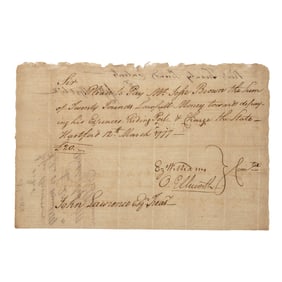 Sir
Please to Pay Mr. Jos. Brown the Sum
of Twenty Pounds Lawfull Money toward defray
ing his Expences Riding Post & Charge the State
Hartford 12th March 1777
£20..
Ez Williams
O. Ellsworth
Com tee
John Lawrence Esqr Treasr